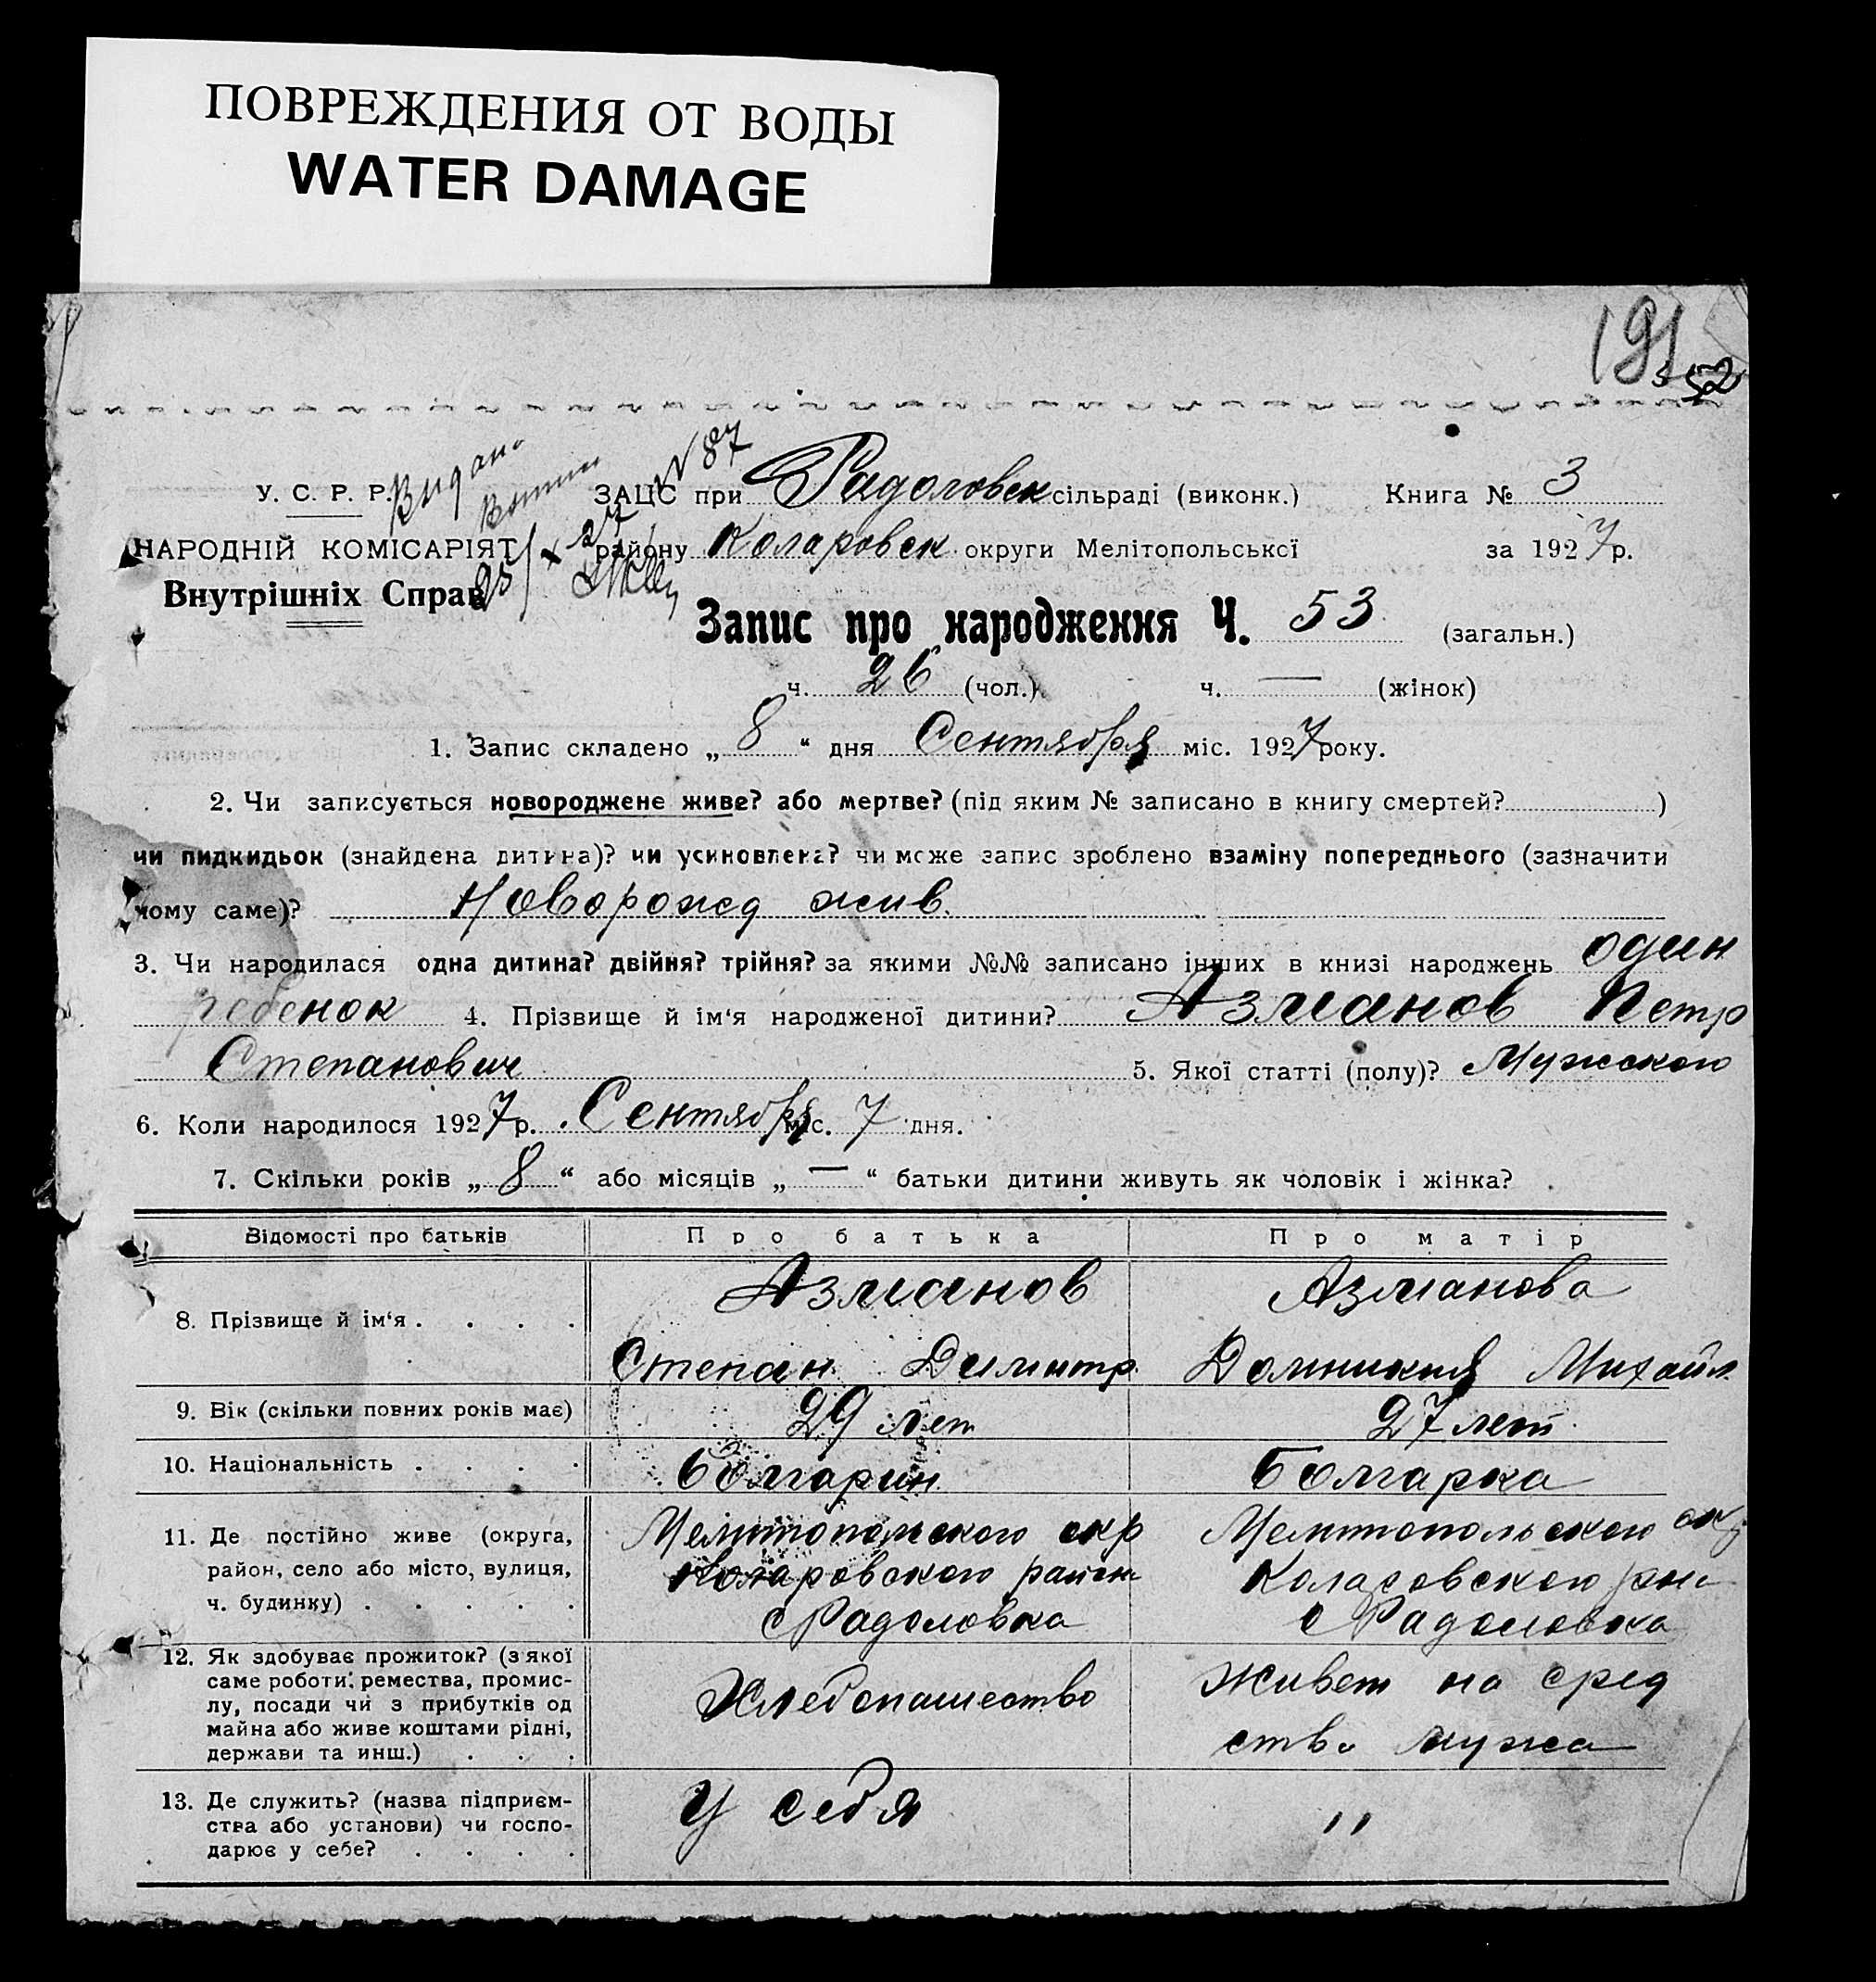 ПОВРЕЖДЕНИЯ ОТ ВОДЫ
WATER DAMAGE
191
52
Видано
N 87
У. С. Р. Р.
НАРОДНІЙ КОМІСАРІЯТ
Внутрішніх Справ
25/X 27
ЗАЦС при Радоловск сільраді (виконк.) Книга № 3
району Коларовск округи Мелітопольської за 1927 р.
Запис про народження Ч. 53 (загальн.)
ч. 26 (чол.) ч. — (жінок)
1. Запис складено „ 8 “ дня Сентября міс. 1927 року.
2. Чи записується новороджене живе? або мертве? (під яким № записано в книгу смертей? )
чи пидкидьок (знайдена дитина)? чи усиновлена? чи може запис зроблено взаміну попереднього (зазначити
чому саме)? Новорожд жив.
3. Чи народилася одна дитина? двійня? трійня? за якими №№ записано інших в книзі народжень один
ребенок 4. Прізвище й ім'я народженої дитини? Азманов Петр
Степанович 5. Якої статті (полу)? Мужского
6. Коли народилося 1927 р. Сентября міс. 7 дня.
7. Скільки років „ 8 “ або місяців „ — “ батьки дитини живуть як чоловік і жінка?
Відомості про батьків Про батька Про матір
8. Прізвище й ім'я . . . . Азманов Азманова
Степан Димитр. Домникия Михайл.
9. Вік (скільки повних років має) 29 лет 27 лет
10. Національність . . . . болгарин Болгарка
11. Де постійно живе (округа, район, село або місто, вулиця, ч. будинку) . . . . .
Мелитопольского окр Мелитопольского окр
Коларовского район Коларовского рна
с Радоловка с Радоловка
12. Як здобуває прожиток? (з якої
саме роботи: ремества, промис-
лу, посади чи з прибутків од
майна або живе коштами рідні,
держави та инш.) . . .
Хлебопашество Живет на сред
ства мужа
13. Де служить? (назва підприєм-
ства або установи) чи госпо-
дарює у себе? . . . .
У себя "